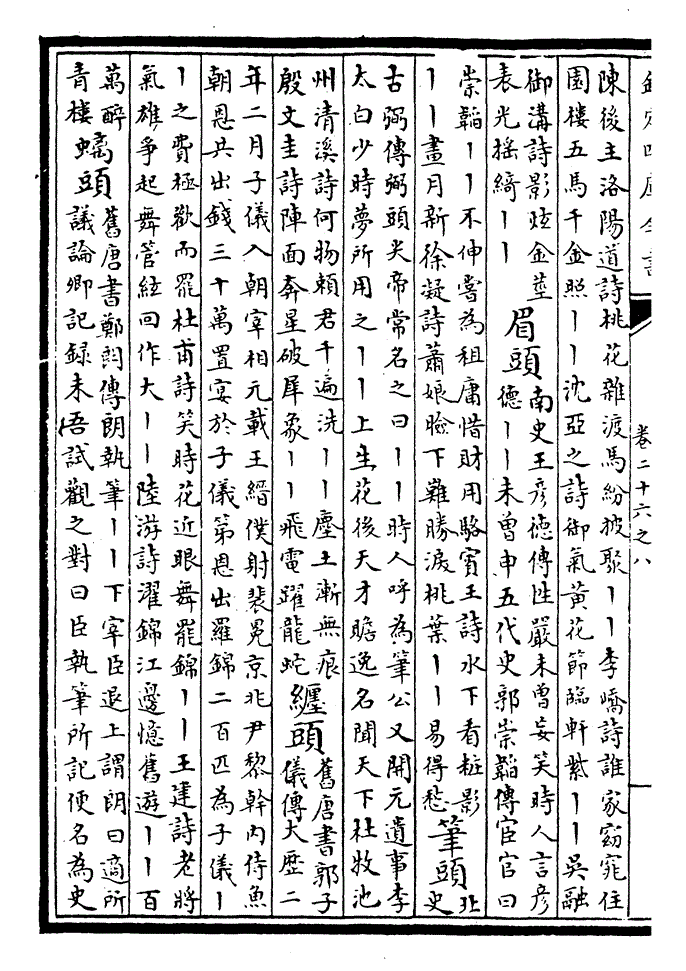 欽定四庫全書
卷二十六之八
陳後主洛陽道詩桃花雜渡馬紛披聚丨丨李嶠詩誰家窈窕住
園樓五馬千金照丨丨沈亞之詩御氣黃花節臨軒紫丨丨吳融
御溝詩影炫金莖
表光搖綺丨丨
眉頭
南史王彥德傳性嚴未曾妄笑時人言彥
德丨丨未曾申五代史郭崇韜傳宦官曰
崇韜丨丨不伸嘗為租庸惜財用駱賓王詩水下看粧影
丨丨畫月新徐凝詩蕭娘臉下難勝淚桃葉丨丨易得愁
筆頭
北
史
古弼傳弼頭尖帝常名之曰丨丨時人呼為筆公又開元遺事李
太白少時夢所用之丨丨上生花後天才贍逸名聞天下杜牧池
州清溪詩何物賴君千遍洗丨丨塵土漸無痕
殷文圭詩陣面奔星破犀象丨丨飛電躍龍蛇
纏頭
舊唐書郭子
儀傳大歷二
年二月子儀入朝宰相元載王縉僕射裴冕京兆尹黎幹內侍魚
朝恩共出錢三十萬置宴於子儀第恩出羅錦二百匹為子儀丨
丨之費極歡而罷杜甫詩笑時花近眼舞罷錦丨丨王建詩老將
氣雄爭起舞管絃回作大丨丨陸游詩濯錦江邊憶舊遊丨丨百
萬醉
青樓
螭頭
舊唐書鄭朗傳朗執筆丨丨下宰臣退上謂朗曰適所
議論卿記録未吾試觀之對曰臣執筆所記便名為史